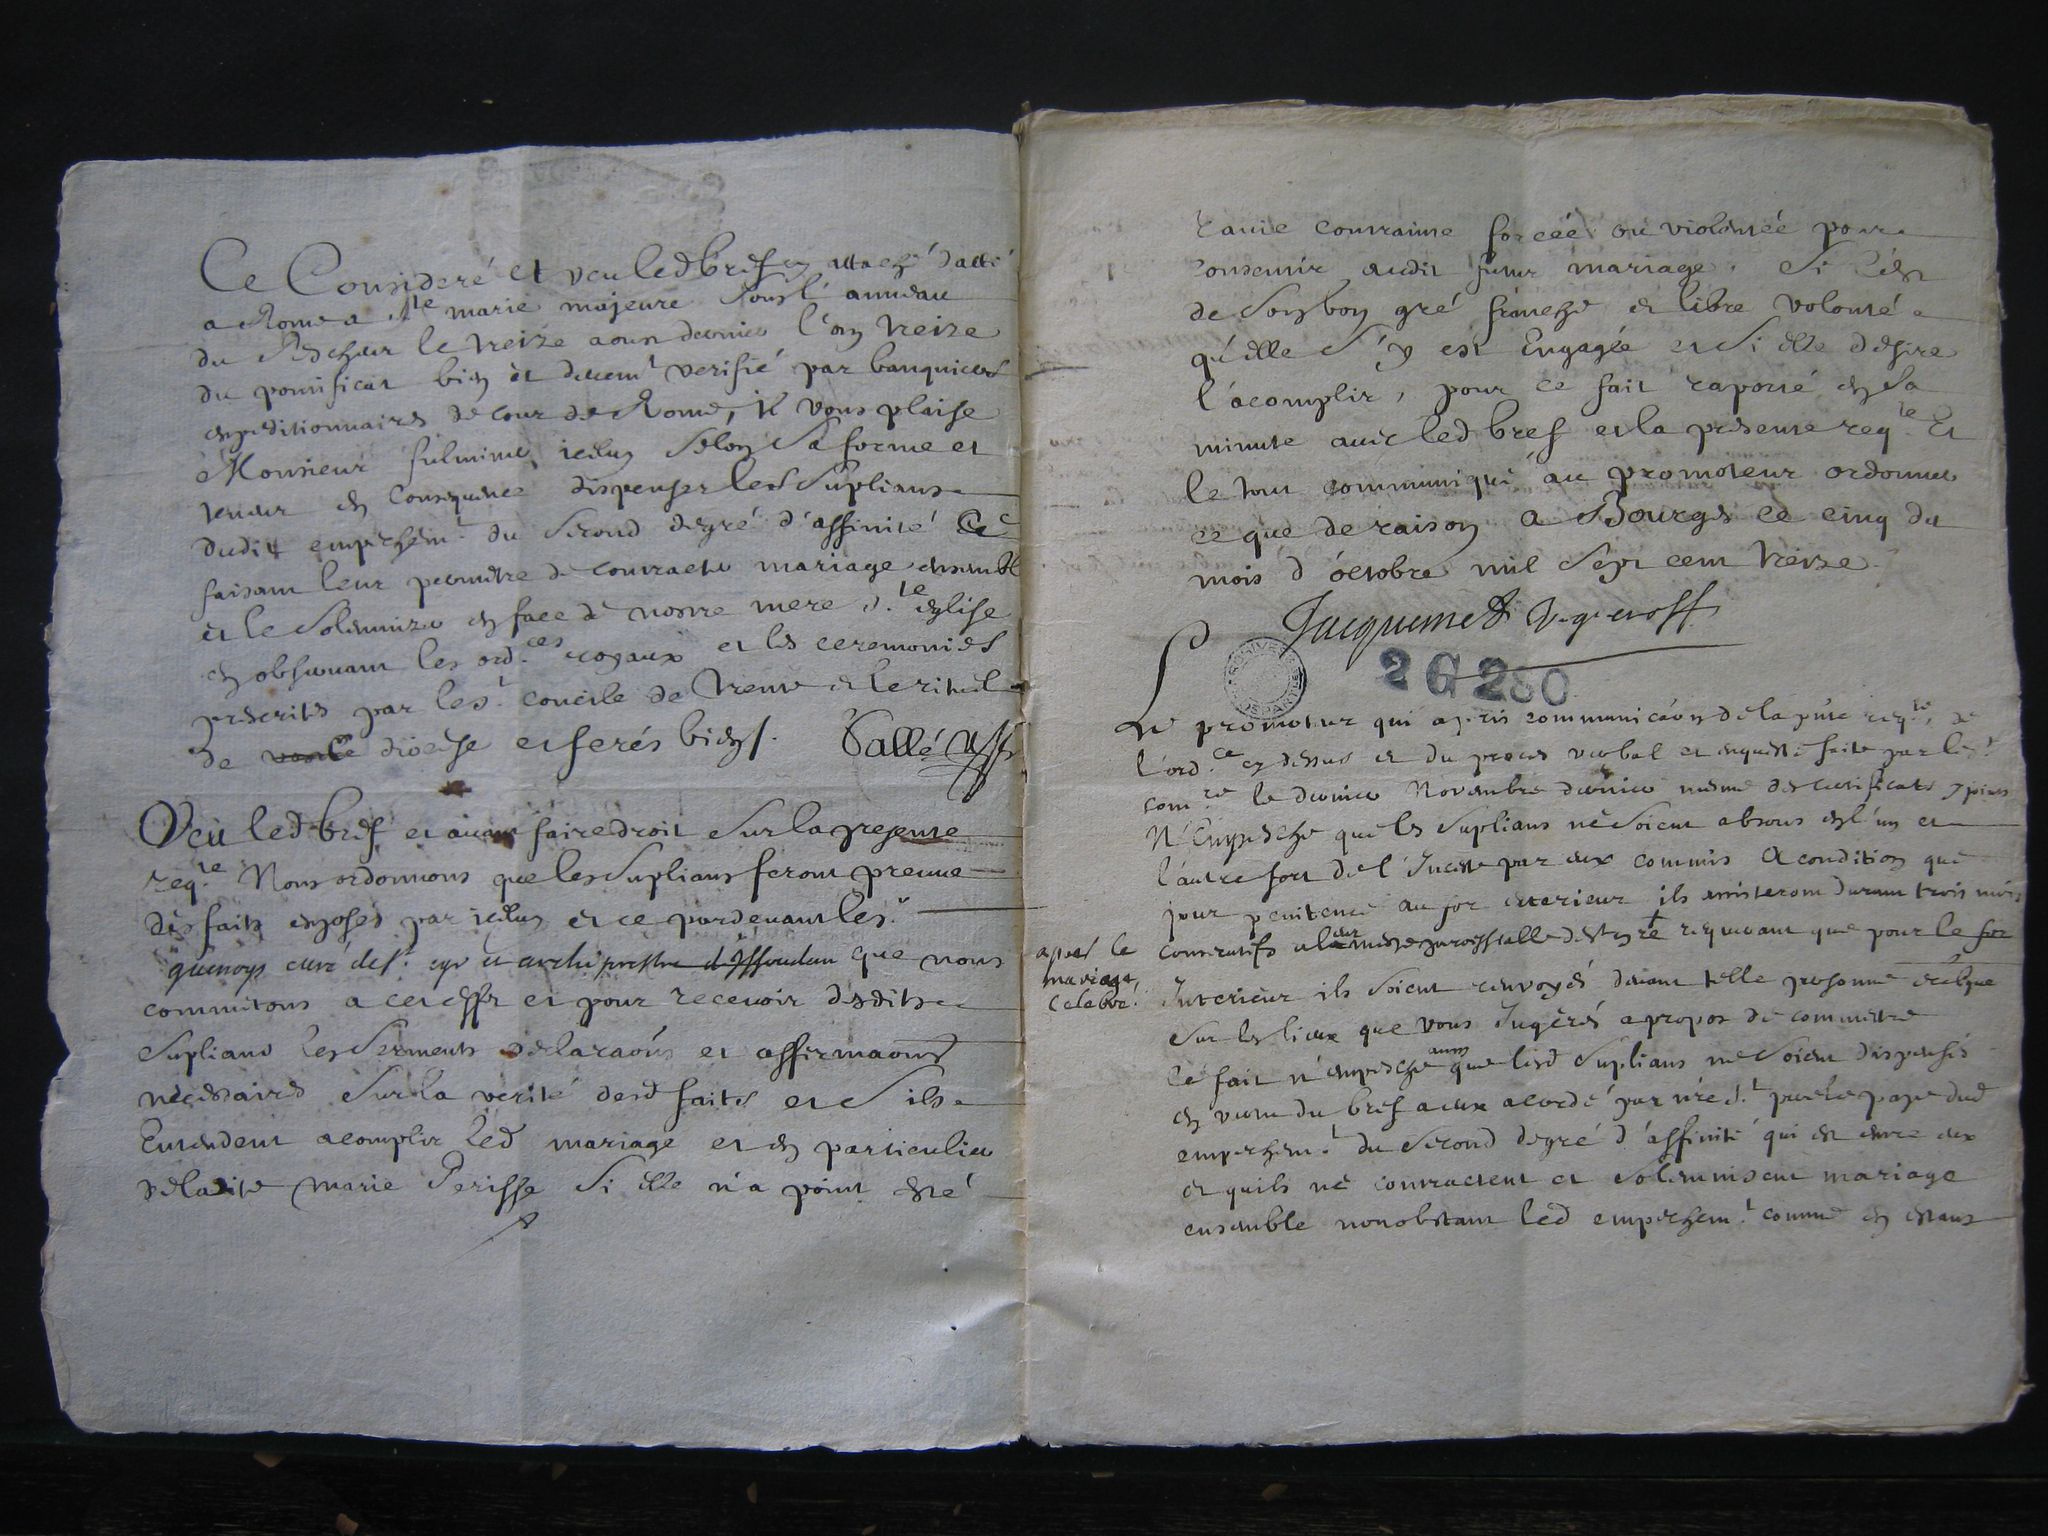 Ce Consideré et veu led bref cy attaché datté
a Rome a Ste marie majeure Sous l'anneau
du Pescheur le treize aoust dernier l'an treize
du pontificat bien et decem.t verifié par banquiers
expeditionnaires de cour de Rome, il vous plaise
Monsieur fulminer iceluy Selon Sa forme et
teneur en Consequence dispenser les Supliants
dudit empeschem.t du Second degré d'affinité Ce
faisant leur permettre de contracter mariage ensemble
et le Solemnizer en face de nostre mere S.te eglise
en observant les ord.ces royaux et les ceremonies
prescrites par le s.t concile de trente et le rituel
de diocese et ferés bien.
Sallé
Veu led bref et avant faire droit Sur la presente
req.te Nous ordonnons que les Supliants feront preuve
des faits exposés par iceluy et ce pardevant le s.r
quenoys curé de s.t cyr et archiprestre d'Issoudun que nous
commettons a cet effet et pour recevoir desdits
Supliants les Serments declaraons et affirmaons
necessaires Sur la verité desd faits et S'ils
Entendent acomplir led mariage et en particulier
de ladite marie Perisse Si elle n'a point esté
ravie contrainte forcée ou violentée pour
consentir audit futur mariage. Si c'est
de Son bon gré franche et libre volonté
qu'elle S'y est Engagée et Si elle desire
l'acomplir, pour ce fait raporté en la
minute avec led bref et la presente req.te Et
le tout communiqué au promoteur ordonner
ce que de raison a Bourges ce cinq du
mois d'octobre mil Sept cent treize
Jacquemet v. g. et off.
2G 280
Le promoteur qui a pris communicaon de la pnte req.te, de
l'ord.ce cy dessus et du proces verbal et enqueste faite par le s.r
com.re le dernier Novembre dernier mesme des certificats y joints
N'Empesche que les Supliants ne Soient absous en l'un et
l'autre fort de l'Inceste par eux commis A condition que
pour penitence au for exterieur ils assisteront durant trois mois
apres le
mariage
celebré
consecutifs a leur messe paroissialle requerant que pour le for
Interieur ils Soient renvoyés devant telle personne
Sur les lieux que vous Jugerés a propos de commettre
Ce fait n'empesche aussy que lesd Suplians ne Soient dispensés
en vertu du bref a eux acordé par nre s.t pere le pape dud
empeschem.t du Second degré d'affinité qui est entre eux
et quils ne contractent et Solemnisent mariage
ensemble nonobstant led empeschem.t comme en estant